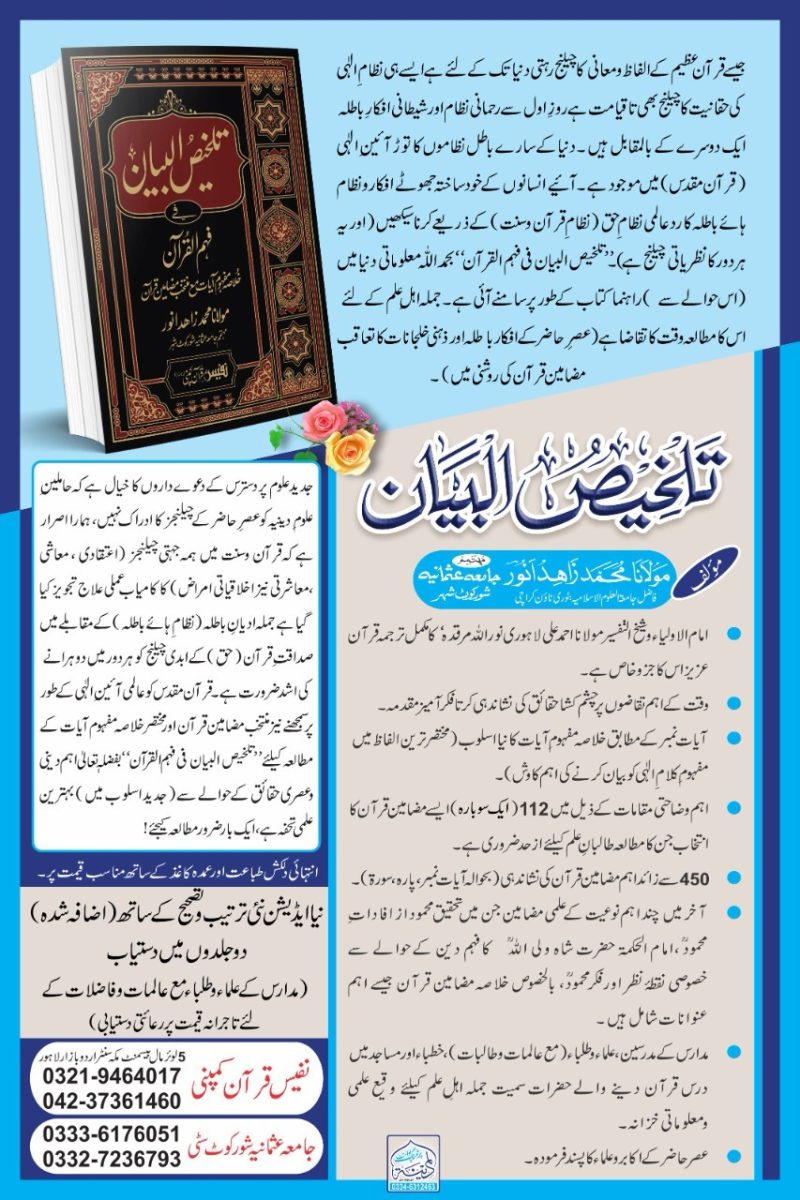 جیسے قرآن عظیم کے الفاظ و معانی کا چیلنج رہتی دنیا تک کے لئے ہے ایسے ہی نظامِ الٰہی
کی حقانیت کا چیلنج بھی تاقیامت ہے روزِ اول سے رحمانی نظام اور شیطانی افکارِ باطلہ
ایک دوسرے کے بالمقابل ہیں۔ دنیا کے سارے باطل نظاموں کا توڑ آئینِ الٰہی
(قرآن مقدس) میں موجود ہے۔ آئیے انسانوں کے خود ساختہ جھوٹے افکار و نظام
ہائے باطلہ کا رد عالمی نظامِ حق (نظامِ قرآن و سنت) کے ذریعے کرنا سیکھیں (اور یہ
ہر دور کا نظریاتی چیلنج ہے)۔ ”تلخیص البیان فی فہم القرآن“ بحمد اللہ معلوماتی دنیا میں
(اس حوالے سے) راہنما کتاب کے طور پر سامنے آئی ہے۔ جملہ اہلِ علم کے لئے
اس کا مطالعہ وقت کا تقاضا ہے (عصرِ حاضر کے افکارِ باطلہ اور ذہنی خلجانات کا تعاقب
مضامین قرآن کی روشنی میں)۔
تلخیص البیان
فی
فہم القرآن
خلاصہ مفہوم آیات مع منتخب مضامین قرآن
مولانا محمد زاھد انور
مہتمم جامعہ عثمانیہ شورکوٹ شہر
نفیس قرآن کمپنی
تَلْخِیصُ الْبَیَان
مؤلف
مولانا محمد زاھد انور مہتمم جامعہ عثمانیہ شورکوٹ شہر
فاضل جامعۃ العلوم الاسلامیہ بنوری ٹاؤن کراچی
امام الاولیاء و شیخ التفسیر مولانا احمد علی لاہوری نور اللہ مرقدہٗ کا مکمل ترجمہ قرآن
عزیز اس کا جزوِ خاص ہے۔
وقت کے اہم تقاضوں پر چشم کشا حقائق کی نشاندہی کرتا فکر آمیز مقدمہ۔
آیات نمبر کے مطابق خلاصہ مفہومِ آیات کا نیا اسلوب (مختصر ترین الفاظ میں
مفہومِ کلامِ الٰہی کو بیان کرنے کی اہم کاوش)۔
اہم وضاحتی مقامات کے ذیل میں 112 (ایک سو بارہ) ایسے مضامین قرآن کا
انتخاب جن کا مطالعہ طالبانِ علم کیلئے از حد ضروری ہے۔
450 سے زائد اہم مضامین قرآن کی نشاندہی (بحوالہ آیات نمبر، پارہ، سورۃ)۔
آخر میں چند اہم نوعیت کے علمی مضامین جن میں تحقیق محمود از افاداتِ
محمودؒ، امام الحکمۃ حضرت شاہ ولی اللہؒ کا فہم دین کے حوالے سے
خصوصی نقطۂ نظر اور فکرِ محمودؒ، بالخصوص خلاصہ مضامین قرآن جیسے اہم
عنوانات شامل ہیں۔
مدارس کے مدرسین، علماء و طلباء (مع عالمات و طالبات)، خطباء اور مساجد میں
درس قرآن دینے والے حضرات سمیت جملہ اہلِ علم کیلئے وقیع علمی
و معلوماتی خزانہ۔
عصرِ حاضر کے اکابر و علماء کا پسند فرمودہ۔
جدید علوم پر دسترس کے دعوے داروں کا خیال ہے کہ حاملینِ
علومِ دینیہ کو عصرِ حاضر کے چیلنجز کا ادراک نہیں، ہمارا اصرار
ہے کہ قرآن و سنت میں ہمہ جہتی چیلنجز (اعتقادی، معاشی
،معاشرتی نیز اخلاقیاتی امراض) کا کامیاب عملی علاج تجویز کیا
گیا ہے جملہ ادیانِ باطلہ (نظام ہائے باطلہ) کے مقابلے میں
صداقتِ قرآن (حق) کے ابدی چیلنج کو ہر دور میں دوہرانے
کی اشد ضرورت ہے۔ قرآن مقدس کو عالمی آئینِ الٰہی کے طور
پر سمجھنے نیز منتخب مضامین قرآن اور مختصر خلاصہ مفہوم آیات کے
مطالعہ کیلئے ”تلخیص البیان فی فہم القرآن“ بفضلہٖ تعالیٰ اہم دینی
و عصری حقائق کے حوالے سے (جدید اسلوب میں) بہترین
علمی تحفہ ہے، ایک بار ضرور مطالعہ کیجئے!
انتہائی دلکش طباعت اور عمدہ کاغذ کے ساتھ مناسب قیمت پر۔
نیا ایڈیشن نئی ترتیب و تصحیح کے ساتھ (اضافہ شدہ)
دو جلدوں میں دستیاب
(مدارس کے علماء و طلباء مع عالمات و فاضلات کے
لئے تاجرانہ قیمت پر رعائتی دستیابی)
5 لوئر مال بیسمنٹ مکہ سنٹر اردو بازار لاہور
نفیس قرآن کمپنی
0321-9464017
042-37361460
جامعہ عثمانیہ شورکوٹ سٹی
0333-6176051
0332-7236793
مدینہ